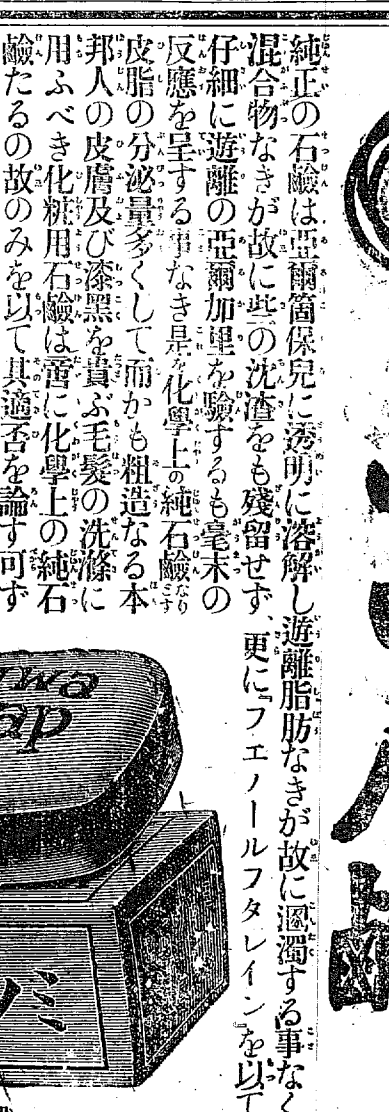 純正の石鹼は亞爾箇保兒に透明に溶解し遊離脂肪なきが故に溷濁する事なく
混合物なきが故に些の沈渣をも殘留せず、更に『フエノールフタレイン』を以て
仔細に遊離の亞爾加里を驗するも毫末の
反應を呈する事なき是を化學上の純石鹼なりとす
皮脂の分泌量多くして而かも粗造なる本
邦人の皮膚及び漆黑を貴ぶ毛髮の洗滌に
用ふべき化粧用石鹼は啻に化學上の純石
鹼たるの故のみを以て其適否を論す可ず